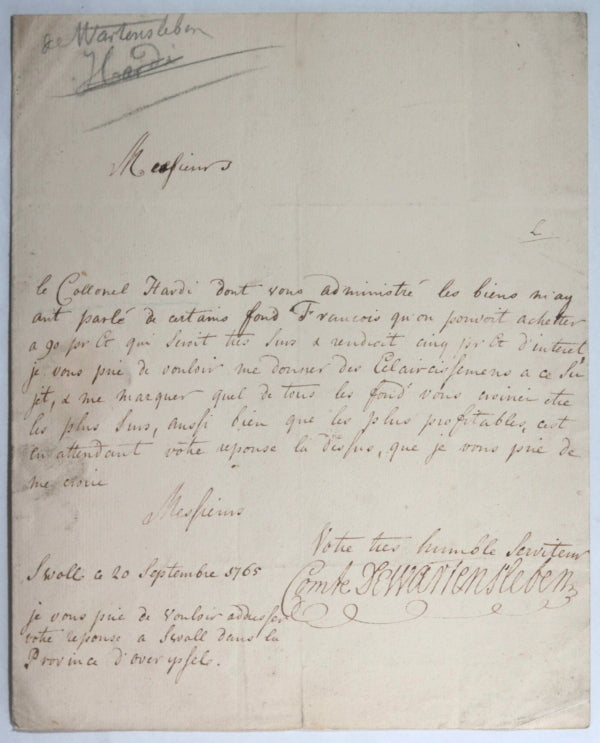 de Wartensleben
Hardi
Messieurs
le Collonel Hardi dont vous administré les biens m'ay
ant parlé de certains fond Francois qu'on pouvoit achetter
a 90 pr Ct qui seroit tres surs & rendroit cinq pr Ct d'interet
je vous prie de vouloir me donner des Eclaircissemens a ce Su
jet, & me marquer quel de tous les fond vous croiriez etre
les plus surs, aussi bien que les plus profitables, cest
en attendant votre reponse la Dessus, que je vous prie de
me croire
Messieurs
Votre tres humble Serviteur
Comte De Wartensleben
Swoll ce 20 Septembre 1765
je vous prie de vouloir addresser
votre reponse a Swoll dans la
Province d'overyssels.